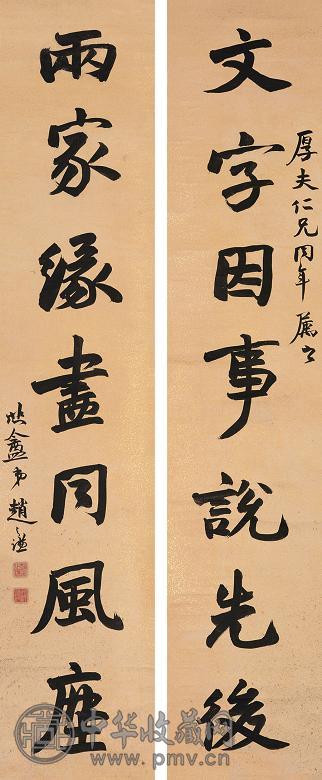 文字因事說先後
厚夫仁兄同年屬
兩家緣畫同風塵
悲盦弟趙之謙
中华收藏网
www.pmv.cn